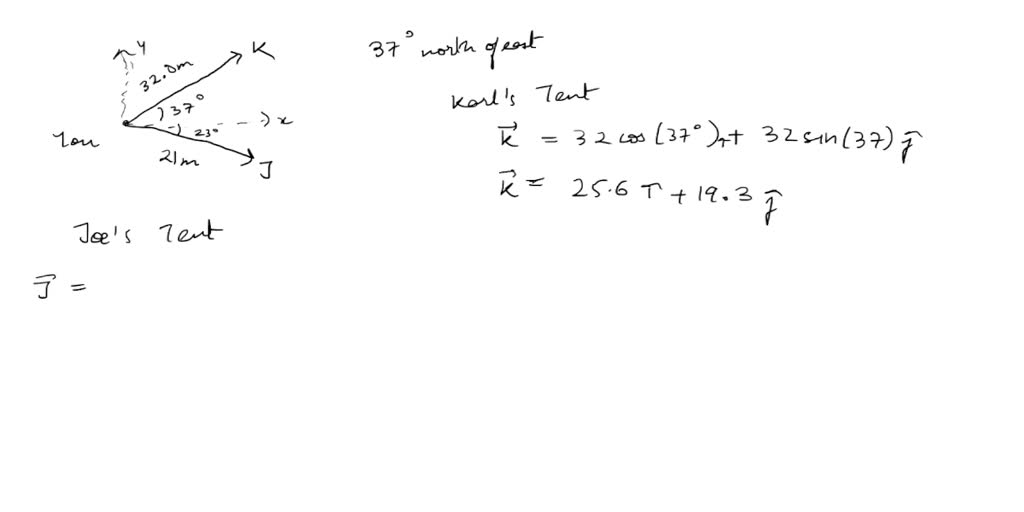 y
K
32.0m
37°
x
23°
You
21m
J
37° north of east
Karl's Tent
k⃗ = 32 cos(37°) î + 32 sin(37) ĵ
k⃗ = 25.6 î + 19.3 ĵ
Joe's Tent
J⃗ =